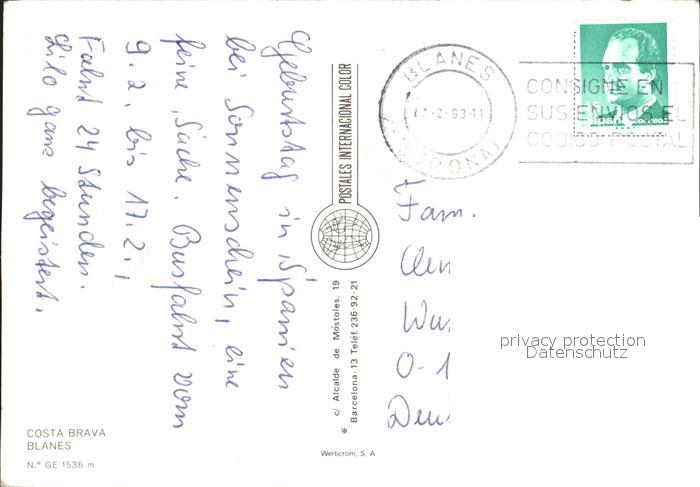 Geburtstag in Spanien
bei Sonnenschein, eine
feine Sache. Busfahrt vom
9.2. bis 17.2.,
Fahrt 24 Stunden.
Lilo ganz begeistert.
COSTA BRAVA
BLANES
N.º GE 1536 m
POSTALES INTERNACIONAL COLOR
* c/ Alcalde de Móstoles, 19
Barcelona-13 Teléf. 236-92-21
Werticrom, S A
BLANES
17-2-93-11
CONSIGNE EN
SUS ENVIOS EL
CODIGO POSTAL
15
España correos
Fam.
O-1
privacy protection
Datenschutz